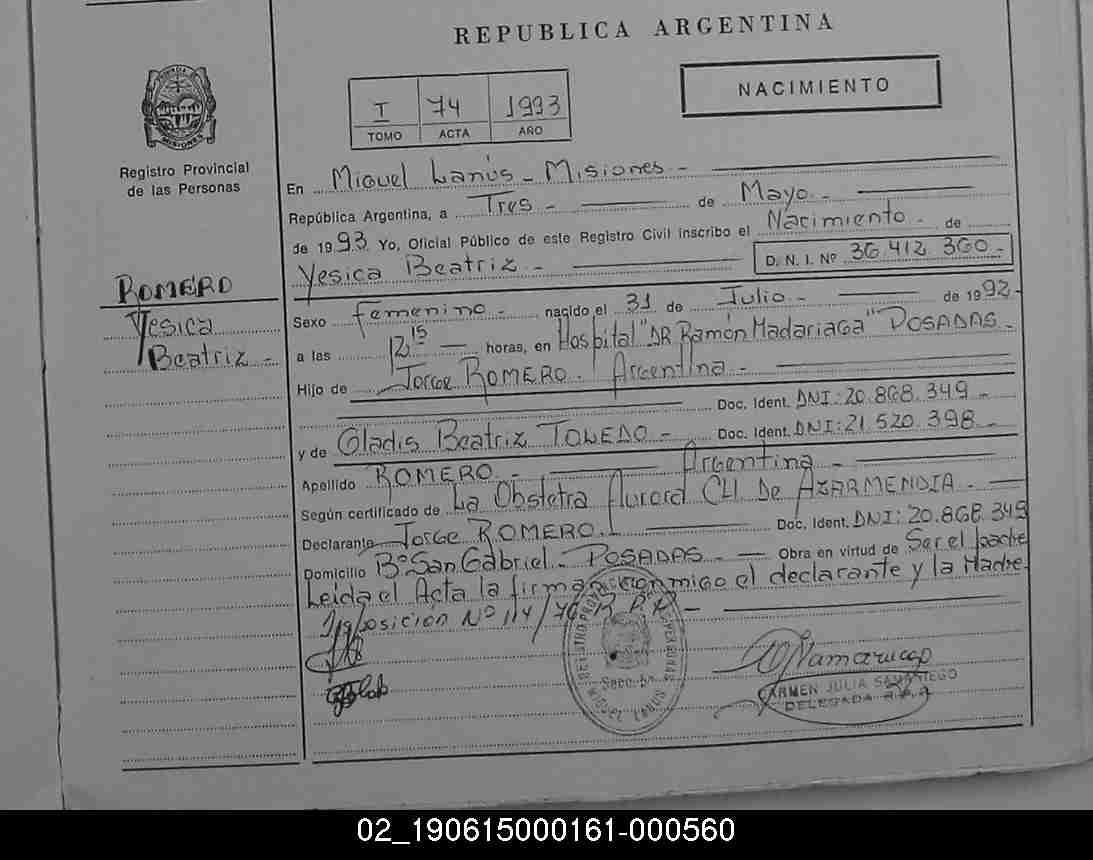 REPUBLICA ARGENTINA
PROVINCIA DE
MISIONES
Registro Provincial
de las Personas
I 74 1993
TOMO ACTA AÑO
NACIMIENTO
En Miguel Lanús - Misiones -
República Argentina, a Tres - de Mayo -
de 1993. Yo, Oficial Público de este Registro Civil inscribo el Nacimiento - de
Yesica Beatriz - D. N. I. Nº 36.412.360 -
ROMERO
Yesica
Beatriz -
Sexo femenino - nacido el 31 de Julio - de 1992 -
a las 12 15 - horas, en Hospital "DR Ramón Madariaga" POSADAS -
Hijo de Jorge ROMERO. Argentina -
Doc. Ident. DNI: 20.868.349 -
y de Gladis Beatriz TOLEDO - Doc. Ident. DNI: 21.520.398 -
Argentina -
Apellido ROMERO -
Según certificado de La Obstetra Aurora CH De AZARMENDIA -
Declarante Jorge ROMERO. Doc. Ident. DNI: 20.868.349
Domicilio Bº San Gabriel - POSADAS - Obra en virtud de Ser el padre
Leida el Acta la firman conmigo el declarante y la Madre
Disposición Nº 114/76 R.P.P -
CARMEN JULIA SAMANIEGO
DELEGADA
02_190615000161-000560